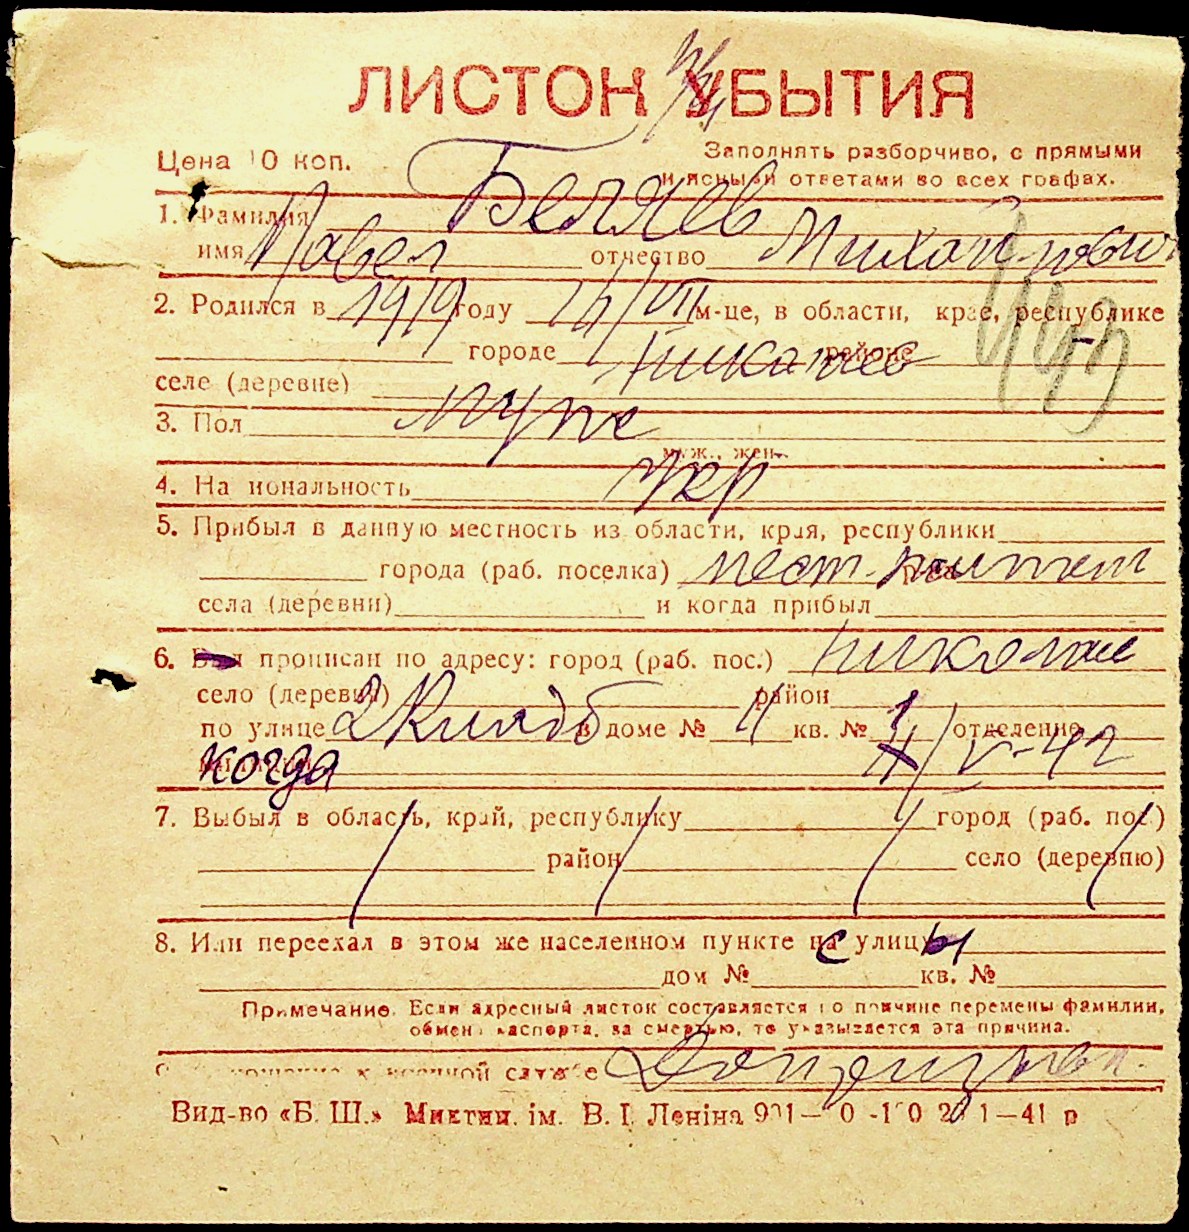 ЛИСТОК УБЫТИЯ
Цена 10 коп.
Заполнять разборчиво, с прямыми
и ясными ответами во всех графах.
1. Фамилия Беляев
имя Павел отчество Михайлович
2. Родился в 1919 году VII м-це, в области, крае, республике
городе Николаев районе
селе (деревне)
3. Пол муж
муж., жен.
4. Национальность укр
5. Прибыл в данную местность из области, края, республики
города (раб. поселка) мест. житель
села (деревни) и когда прибыл
6. Был прописан по адресу: город (раб. пос.) Николаев
село (деревня) район
по улице 2 Кладб в доме № 11 кв. № 1 отделение
когда V-42
7. Выбыл в область, край, республику город (раб. пос.)
район село (деревню)
8. Или переехал в этом же населенном пункте на с улицы
дом № кв. №
Примечание. Если адресный листок составляется по причине перемены фамилии,
обмена паспорта, за смертью, то указывается эта причина.
Отношение к военной службе
Вид-во «Б. Ш.» Миктип. ім. В. І. Леніна 41 р